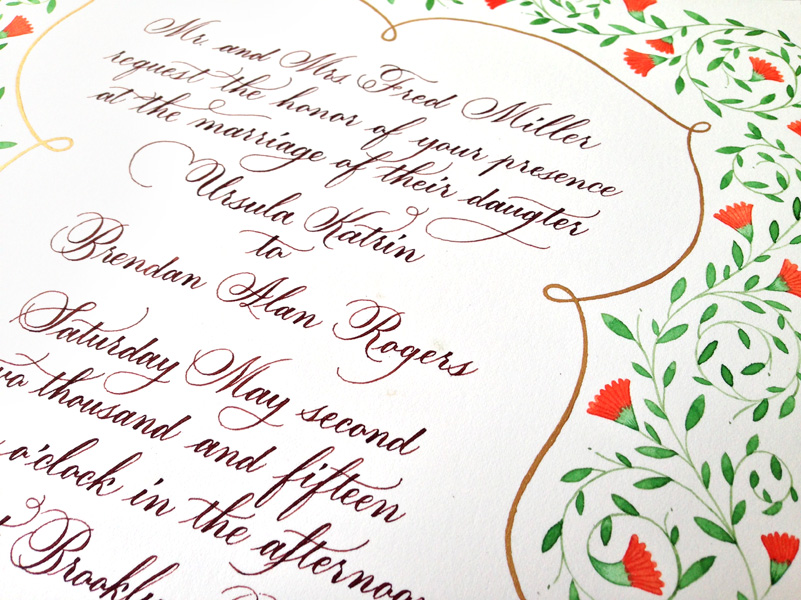 Mr. and Mrs. Fred Miller
request the honor of your presence
at the marriage of their daugter
Ursula Katrin
to
Brendan Alan Rogers
Saturday May second
thousand and fifteen
o'clock in the afternoon
Brooklyn